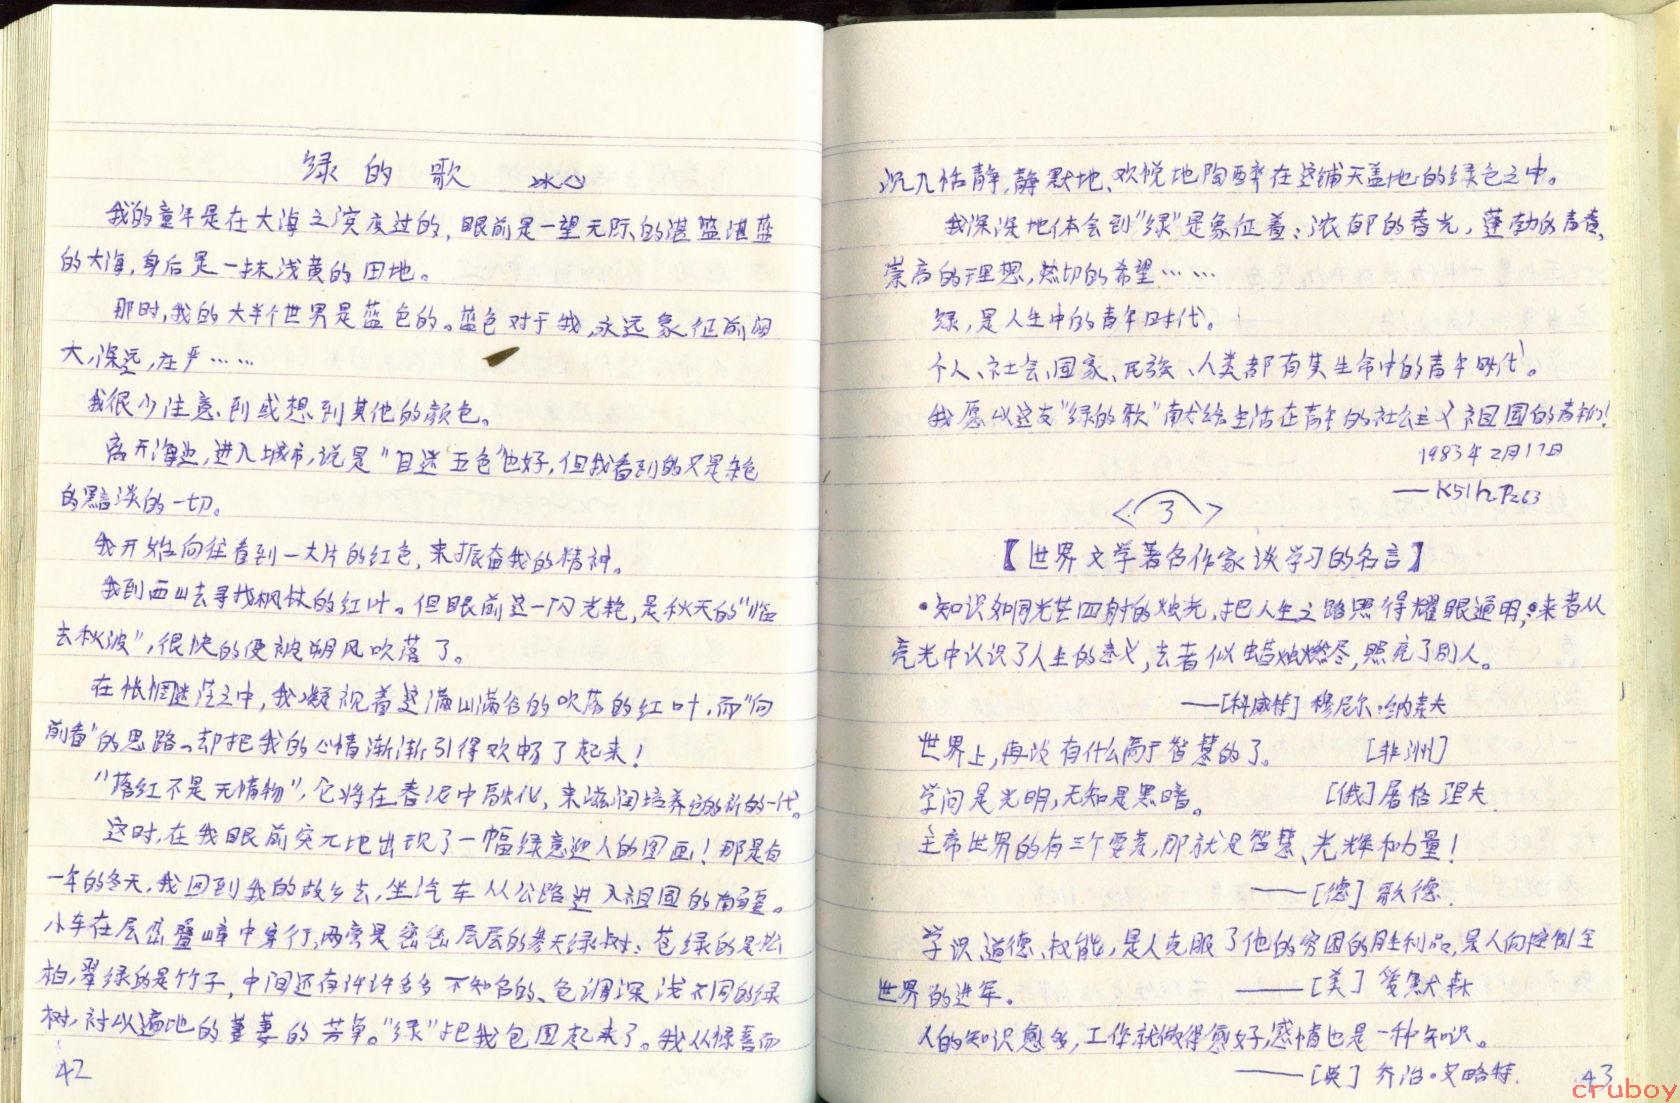 绿的歌 冰心
我的童年是在大海之滨度过的,眼前是一望无际的湛蓝湛蓝
的大海,身后是一抹浅黄的田地。
那时,我的大半个世界是蓝色的。蓝色对于我,永远象征着阔
大,深远,庄严……
我很少注意到或想到其他的颜色。
离开海边,进入城市,说是“目迷五色”也好,但我看到的只是杂色
的黯淡的一切。
我开始向往看到一大片的红色,来振奋我的精神。
我到西山去寻找枫林的红叶。但眼前这一闪光艳,是秋天的“临
去秋波”,很快的便被朔风吹落了。
在怅惘迷茫之中,我凝视着这满山满谷的吹落的红叶,而“向
前看”的思路,却把我的心情渐渐引得欢畅了起来!
“落红不是无情物”,它将在春泥中融化,来滋润培养它的新的一代。
这时,在我眼前突兀地出现了一幅绿意迎人的图画!那是有
一年的冬天,我回到我的故乡去,坐汽车从公路进入祖国的南疆。
小车在层峦叠嶂中穿行,两旁是密密层层的参天绿树:苍绿的是松
柏,翠绿的是竹子,中间还有许许多多不知名的、色调深浅不同的绿
树,衬以遍地的萋萋的芳草。“绿”把我包围起来了。我从惊喜而
42
沉入恬静,静默地、欢悦地陶醉在这铺天盖地的绿色之中。
我深深地体会到“绿”是象征着:浓郁的春光,蓬勃的青春,
崇高的理想,热切的希望……
绿,是人生中的青年时代。
个人、社会、国家、民族、人类都有其生命中的青年时代。
我愿以这支“绿的歌”献给生活在青年的社会主义祖国的青年们!
1983年2月17日
——K51h.P263
<3>
【世界文学著名作家谈学习的名言】
•知识如同光芒四射的烛光,把人生之路照得耀眼通明,来者从
亮光中认识了人生的意义,去者似蜡烛燃尽,照亮了别人。
——[科威特]穆尼尔·纳素夫
世界上,再没有什么高于智慧的了。 [非洲]
学问是光明,无知是黑暗。 [俄]屠格涅夫
主帝世界的有三个要素,那就是智慧、光辉和力量!
——[德]歌德.
学识、道德、权能,是人克服了他的穷困的胜利品,是人向控制全
世界的进军。 ——[美]爱默森
人的知识愈多,工作就做得愈好,感情也是一种知识。
——[英]乔治·艾略特.
43
cruboy